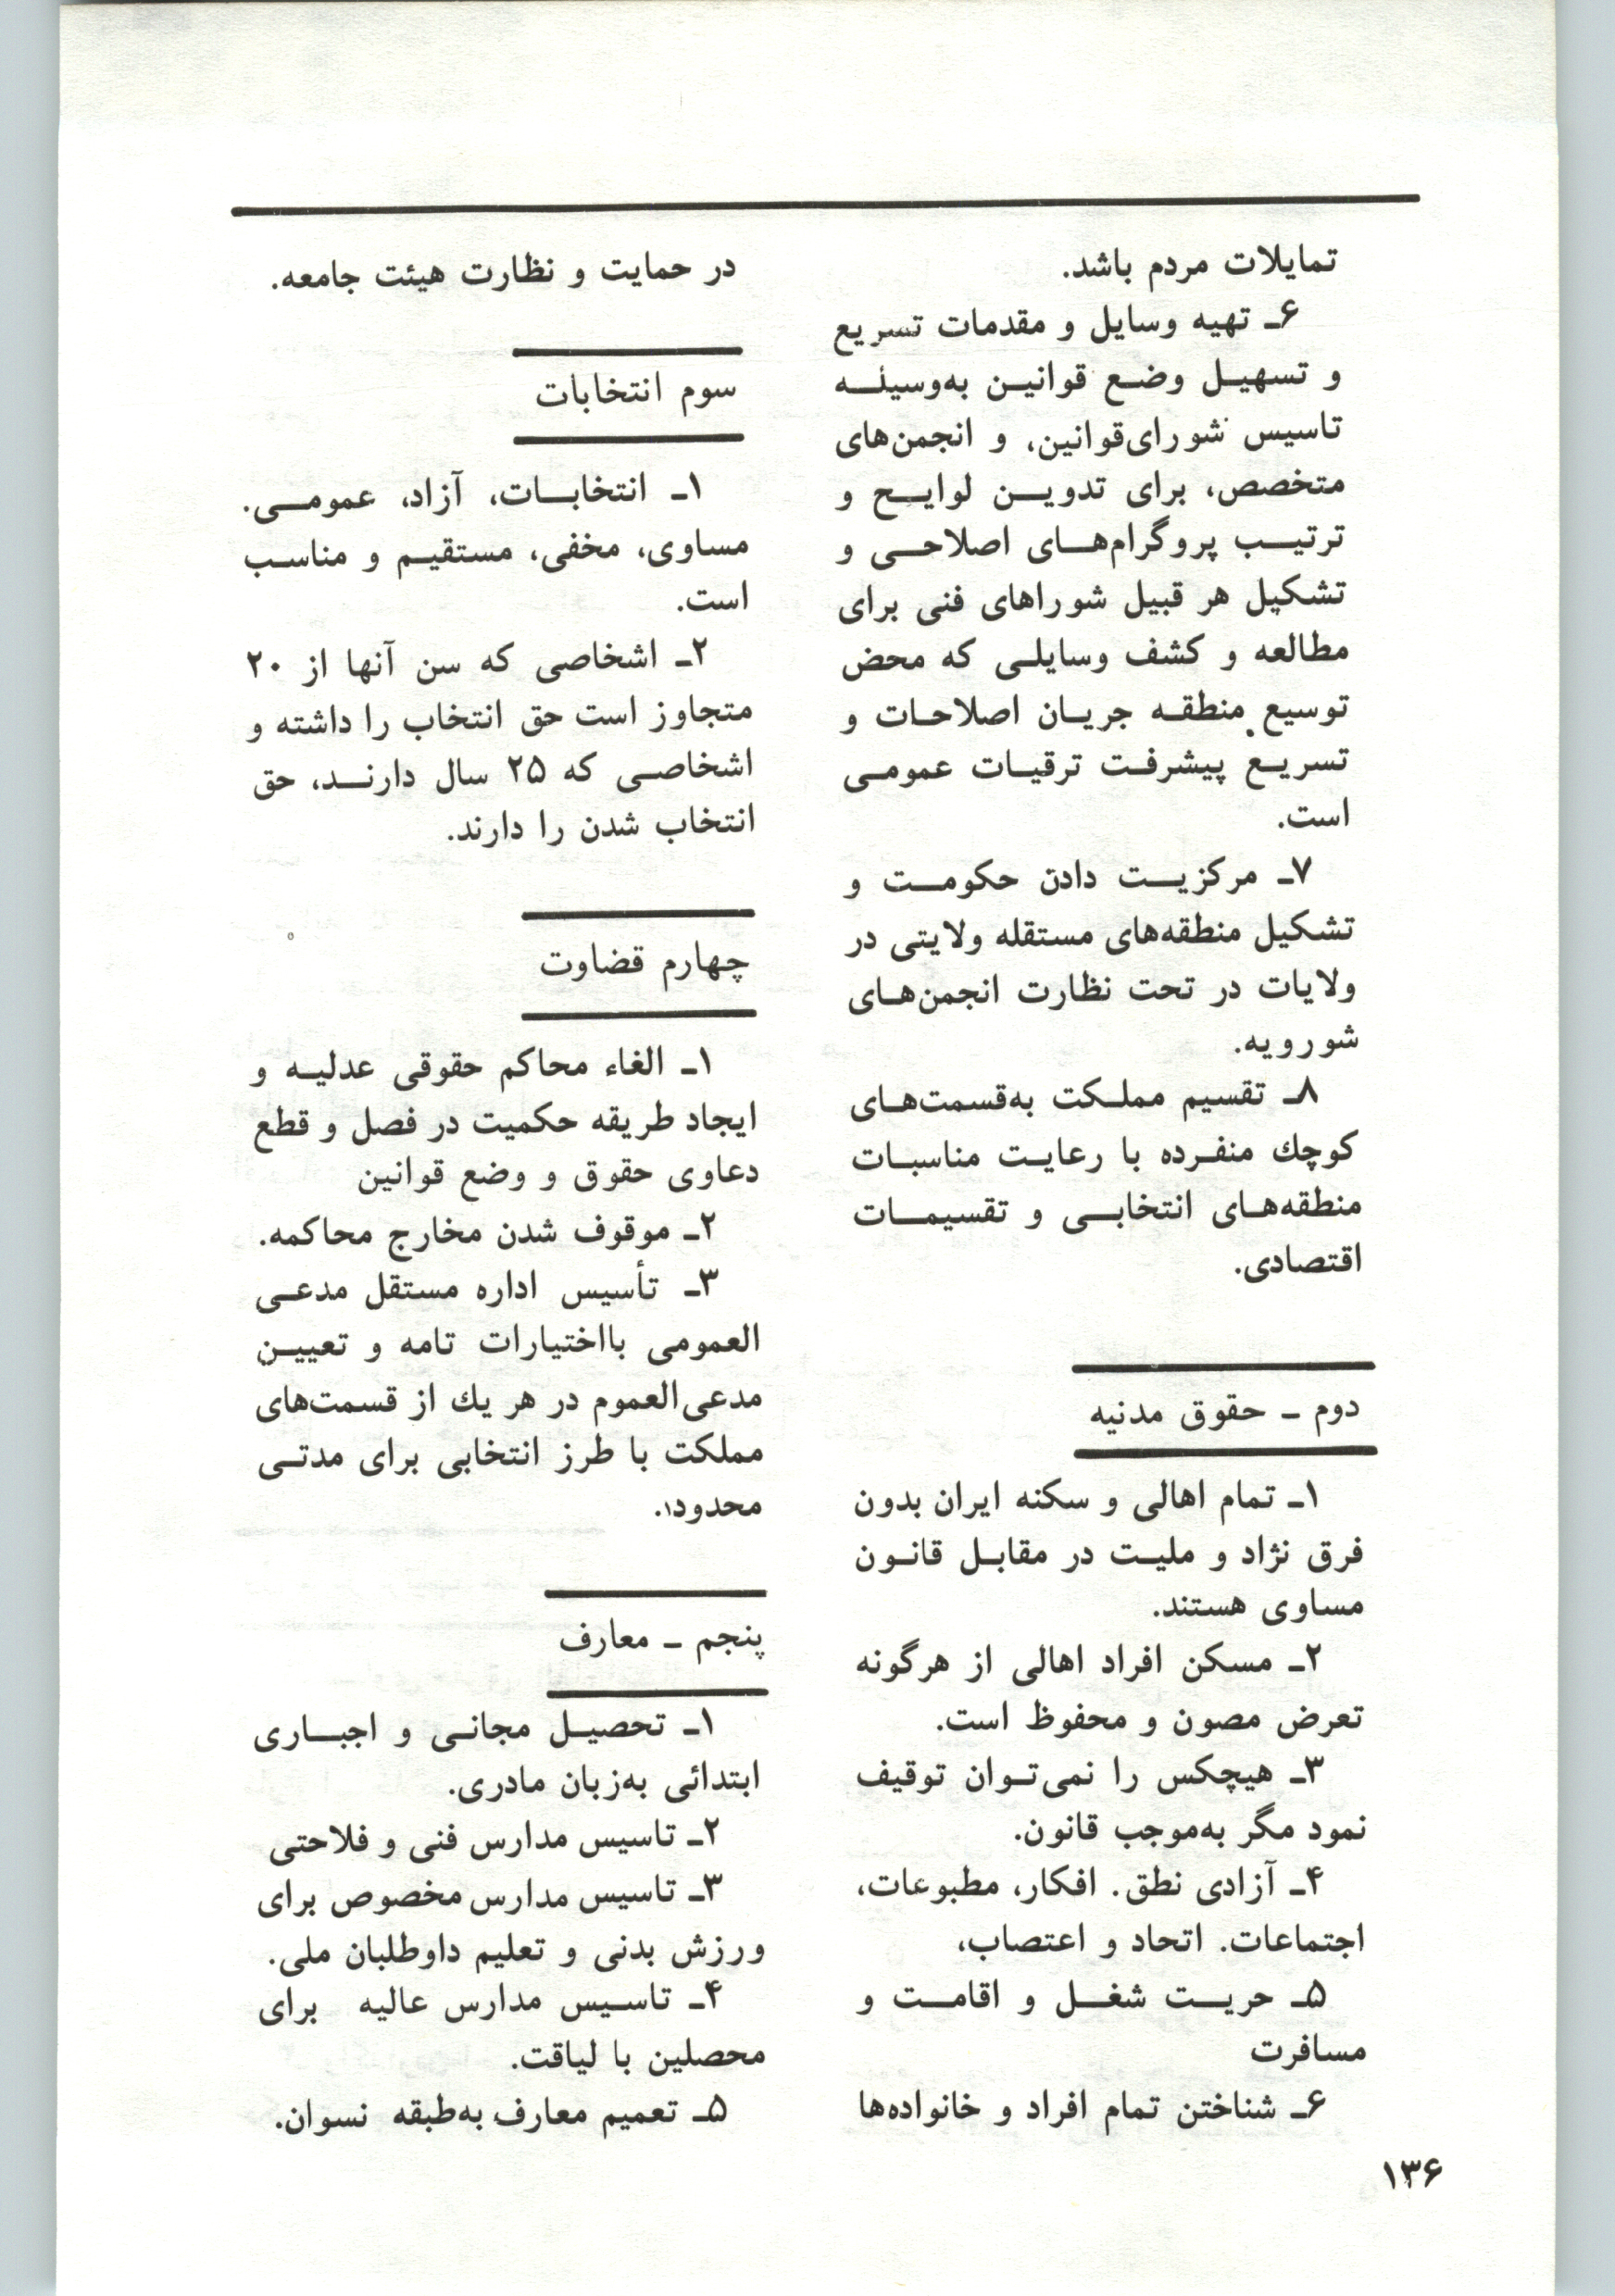 تمایلات مردم باشد.
۶ـ تهیه وسایل و مقدمات تسریع
و تسهیل وضع قوانین به‌وسیله
تاسیس شورای‌قوانین، و انجمن‌های
متخصص، برای تدوین لوایح و
ترتیب پروگرام‌های اصلاحی و
تشکیل هر قبیل شوراهای فنی برای
مطالعه و کشف وسایلی که محض
توسیع منطقه جریان اصلاحات و
تسریع پیشرفت ترقیات عمومی
است.
۷ـ مرکزیت دادن حکومت و
تشکیل منطقه‌های مستقله ولایتی در
ولایات در تحت نظارت انجمن‌های
شورویه.
۸ـ تقسیم مملکت به‌قسمت‌های
کوچك منفرده با رعایت مناسبات
منطقه‌های انتخابی و تقسیمات
اقتصادی.
دوم ـ حقوق مدنیه
۱ـ تمام اهالی و سکنه ایران بدون
فرق نژاد و ملیت در مقابل قانون
مساوی هستند.
۲ـ مسکن افراد اهالی از هرگونه
تعرض مصون و محفوظ است.
۳ـ هیچکس را نمی‌توان توقیف
نمود مگر به‌موجب قانون.
۴ـ آزادی نطق. افکار، مطبوعات،
اجتماعات. اتحاد و اعتصاب،
۵ـ حریت شغل و اقامت و
مسافرت
۶ـ شناختن تمام افراد و خانواده‌ها
در حمایت و نظارت هیئت جامعه.
سوم انتخابات
۱ـ انتخابات، آزاد، عمومی.
مساوی، مخفی، مستقیم و مناسب
است.
۲ـ اشخاصی که سن آنها از ۲۰
متجاوز است حق انتخاب را داشته و
اشخاصی که ۲۵ سال دارند، حق
انتخاب شدن را دارند.
چهارم قضاوت
۱ـ الغاء محاکم حقوقی عدلیه و
ایجاد طریقه حکمیت در فصل و قطع
دعاوی حقوق و وضع قوانین
۲ـ موقوف شدن مخارج محاکمه.
۳ـ تأسیس اداره مستقل مدعی
العمومی بااختیارات تامه و تعیین
مدعی‌العموم در هر یك از قسمت‌های
مملکت با طرز انتخابی برای مدتی
محدود۱.
پنجم ـ معارف
۱ـ تحصیل مجانی و اجباری
ابتدائی به‌زبان مادری.
۲ـ تاسیس مدارس فنی و فلاحتی
۳ـ تاسیس مدارس مخصوص برای
ورزش بدنی و تعلیم داوطلبان ملی.
۴ـ تاسیس مدارس عالیه برای
محصلین با لیاقت.
۵ـ تعمیم معارف به‌طبقه نسوان.
۱۳۶